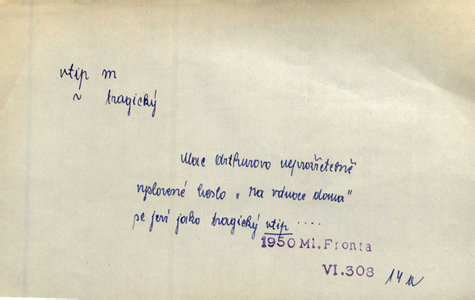 vtip m
~ tragický
Mac Arthurovo neprozřetelně
vyslovené heslo „na vánoce doma"
se jeví jako tragický vtip ....
1950 Ml. Fronta
VI.308